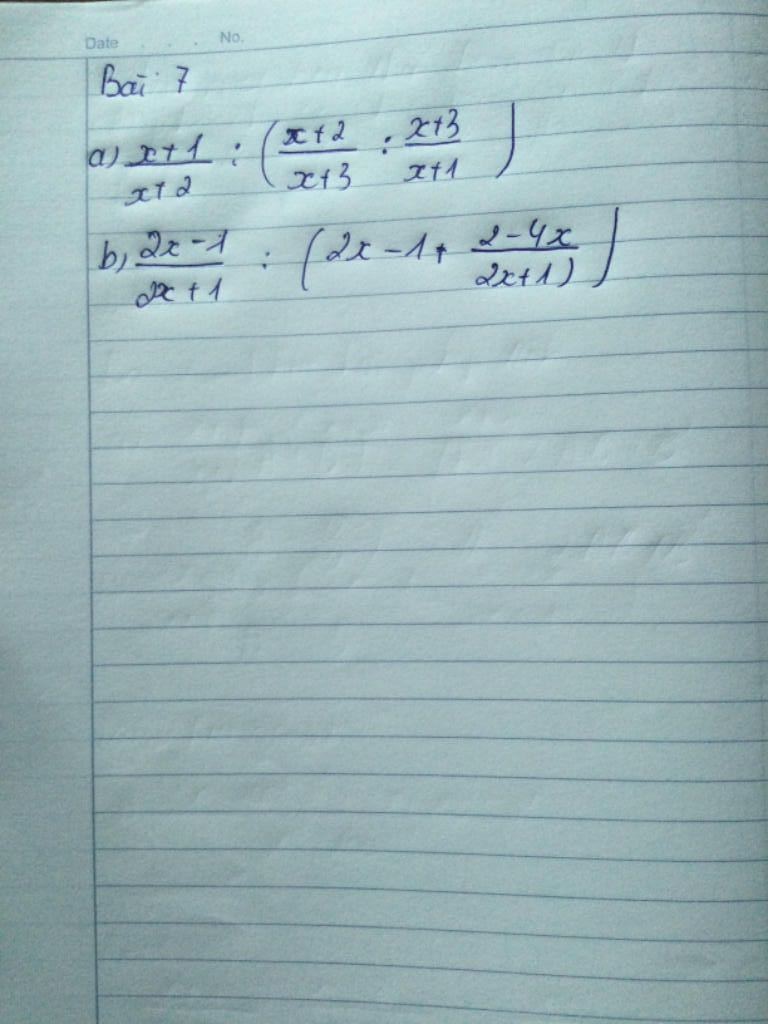 Date . . . No.
Bài 7
a) \frac{x+1}{x+2} : \left( \frac{x+2}{x+3} : \frac{x+3}{x+1} \right)
b) \frac{2x-1}{2x+1} : \left( 2x-1+ \frac{2-4x}{2x+1)} \right)